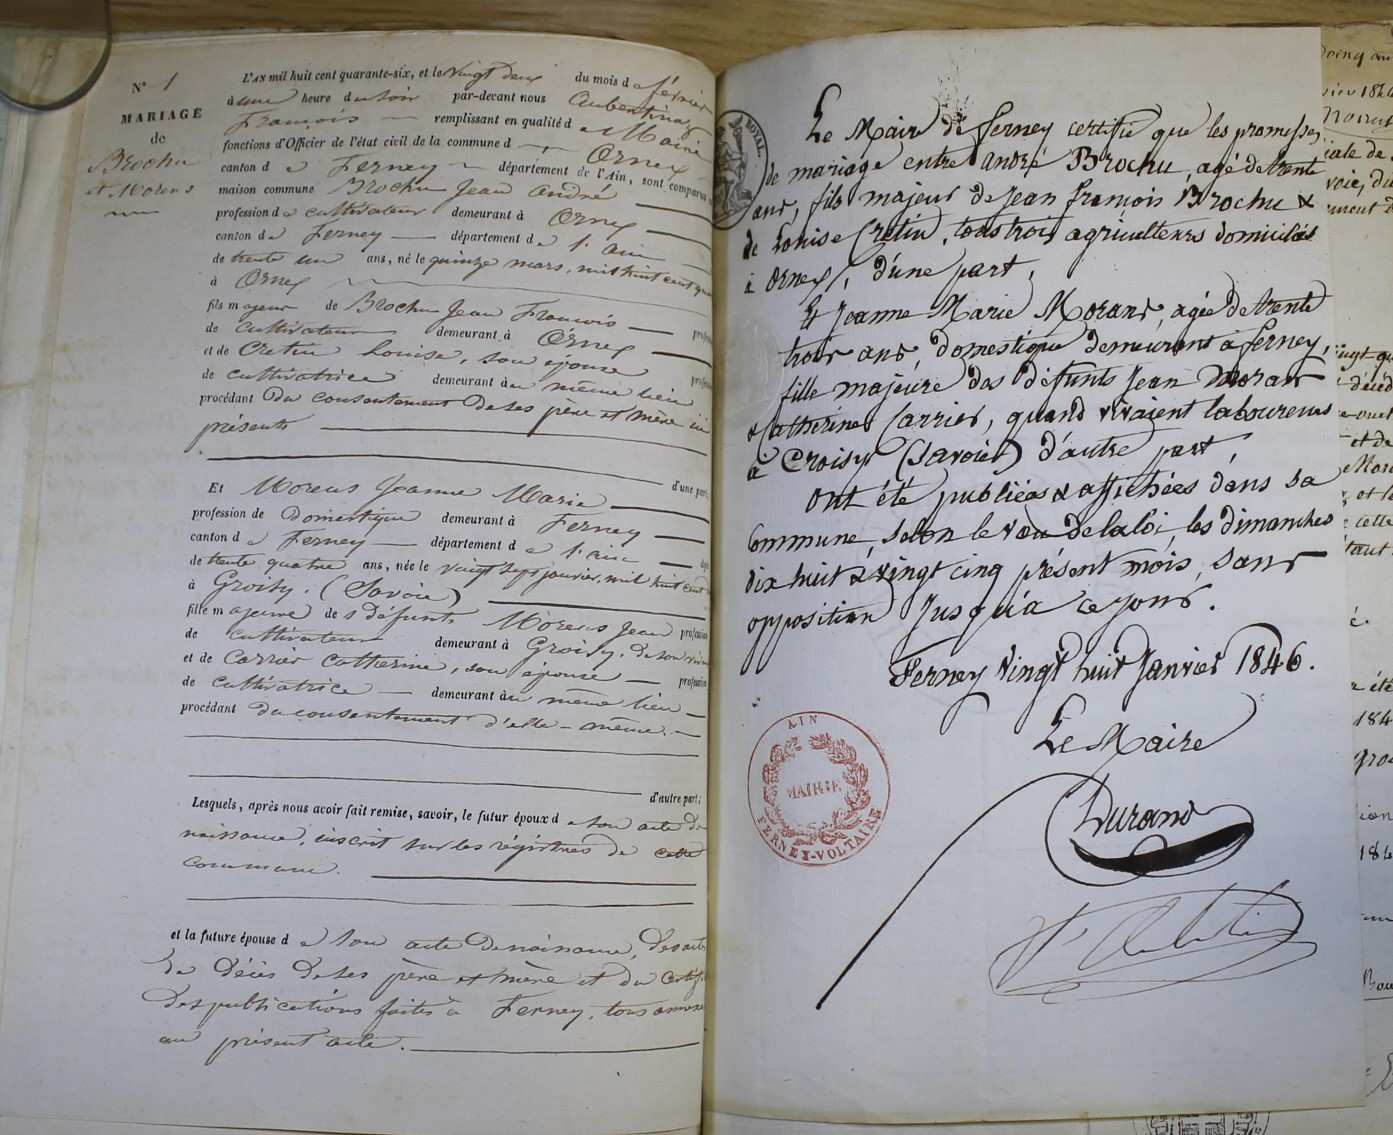 N° 1
MARIAGE
de
Brochu
et Morens
L'AN mil huit cent quarante-six, et le vingt deux du mois de février
à une heure du soir par-devant nous Aubertin
François remplissant en qualité de Maire
fonctions d'Officier de l'état civil de la commune d Ornex
canton de Ferney département de l'Ain, sont comparus
maison commune Brochu Jean André
profession de cultivateur demeurant à Ornex
canton de Ferney département de l'ain
de trente un ans, né le quinze mars, mil huit cent
à Ornex
fils majeur de Brochu Jean François
de cultivateur demeurant à Ornex
et de Cretin Louise, son épouse
de cultivatrice demeurant au même lieu
procédant du consentement de ses père et mère ici
présents
d'une part,
Et Morens Jeanne Marie
profession de Domestique demeurant à Ferney
canton de Ferney département de l'ain
de trente quatre ans, née le vingt sept janvier, mil huit cent
à Groisy. (Savoie)
fille majeure des défunts Morens Jean profession
de cultivateur demeurant à Groisy, de son
et de Carrier Catherine, son épouse profession
de cultivatrice demeurant au même lieu
procédant du consentement d'elle-même.
d'autre part;
Lesquels, après nous avoir fait remise, savoir, le futur époux de son acte de
naissance, inscrit sur les régistres de cette
commune.
et la future épouse de son acte de naissance, des actes
de décès de ses père et mère et du certificat
des publications faites à Ferney, tous annexés
au présent acte.
ROYAL.
Le Maire de Ferney certifie que les promesses
de mariage entre André Brochu, agé de trente
ans, fils majeur de Jean François Brochu &
de Louise Cretin, tous trois agriculteurs domiciliés
à Ornex, d'une part,
Et Jeanne Marie Morans, agée de trente
trois ans, domestique demeurant à Ferney,
fille majeure des défunts Jean Moran
& Catherine Carrier, quand vivaient laboureurs
à Croisy (Savoie) d'autre part
Ont été publiées & affichées dans sa
Commune, selon le vœu de la loi, les dimanches
dix huit & vingt cinq présent mois, sans
opposition jusqu'à ce jour.
Ferney vingt huit Janvier 1846.
Le Maire
Durand
AIN
MAIRIE
FERNEY-VOLTAIRE